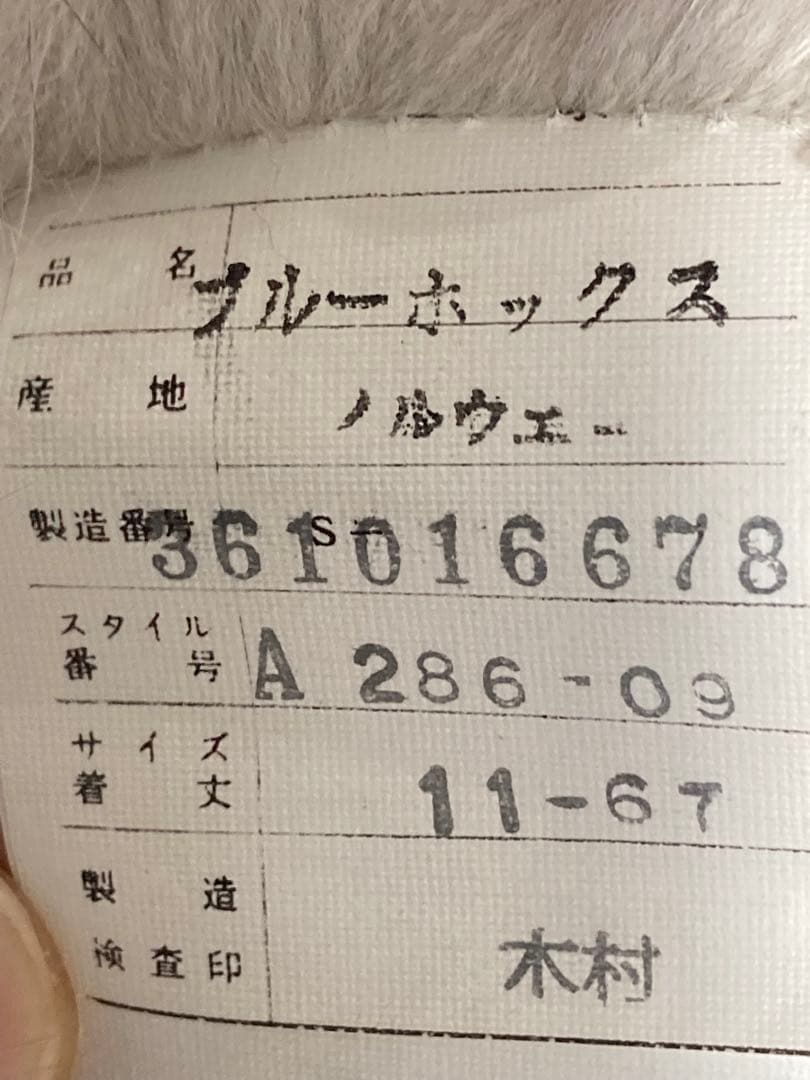 品名 ブルーホックス
産地 ノルウェー
製造番号 S- 361016678
スタイル
番号 A 286-09
サイズ
着丈 11-67
製造
検査印 木村